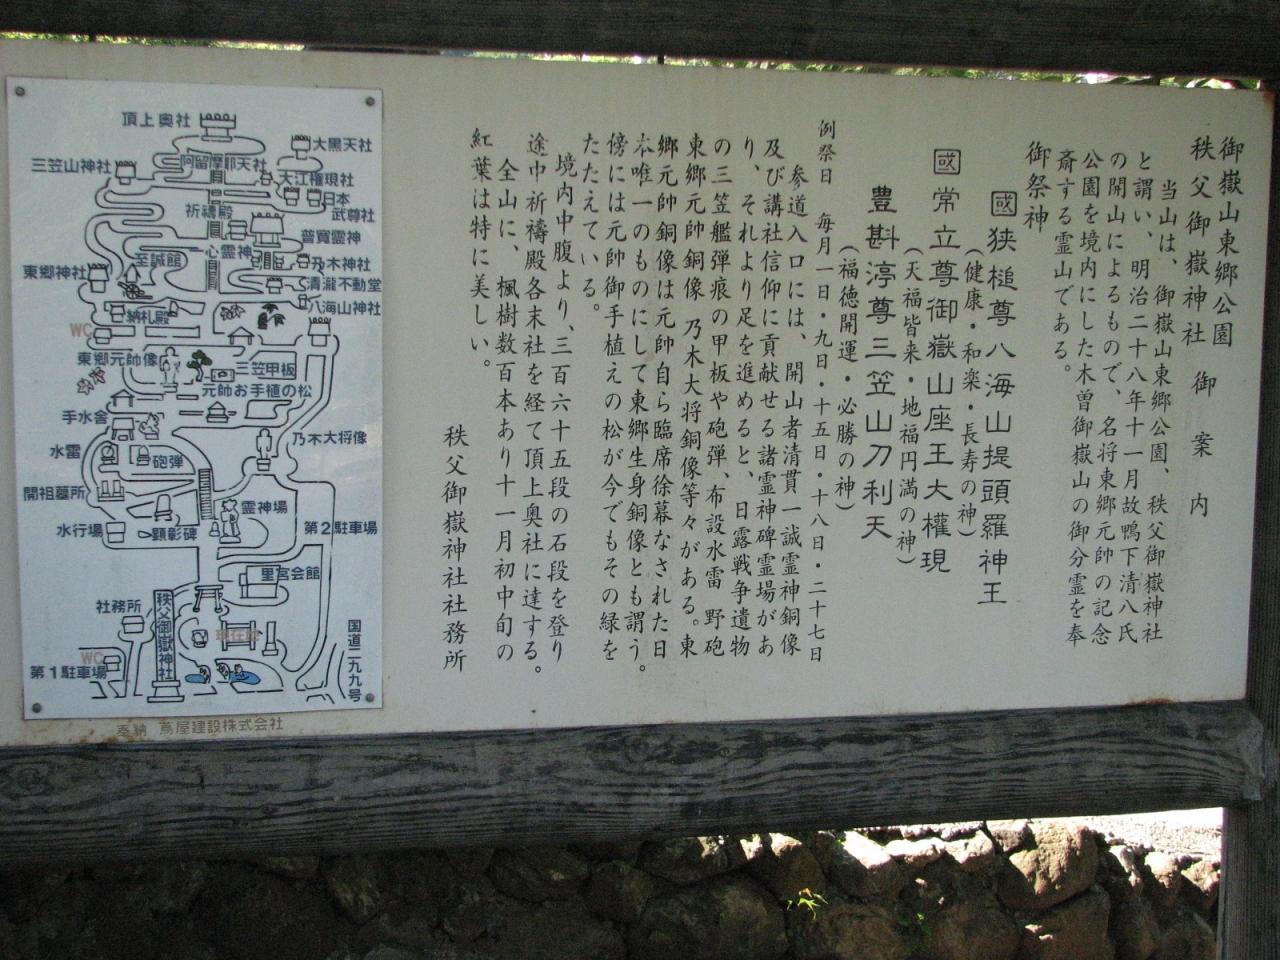 御嶽山東郷公園
秩父御嶽神社 御案内
当山は、御嶽山東郷公園、秩父御嶽神社
と謂い、明治二十八年十一月故鴨下清八氏
の開山によるもので、名将東郷元帥の記念
公園を境内にした木曽御嶽山の御分霊を奉
斎する霊山である。
御祭神
國狭槌尊八海山提頭羅神王
(健康・和楽・長寿の神)
國常立尊御嶽山座王大權現
(天福皆来・地福円満の神)
豊斟渟尊三笠山刀利天
(福徳開運・必勝の神)
例祭日 毎月一日・九日・十五日・十八日・二十七日
参道入口には、開山者清貫一誠霊神銅像
及び講社信仰に貢献せる諸霊神碑霊場があ
り、それより足を進めると、日露戦争遺物
の三笠艦弾痕の甲板や砲弾、布設水雷 野砲
東郷元帥銅像 乃木大将銅像等々がある。東
郷元帥銅像は元帥自ら臨席徐幕なされた日
本唯一のものにして東郷生身銅像とも謂う。
傍には元帥御手植えの松が今でもその緑を
たたえている。
境内中腹より、三百六十五段の石段を登り
途中祈禱殿各末社を経て頂上奥社に達する。
全山に、楓樹数百本あり十一月初中旬の
紅葉は特に美しい。
秩父御嶽神社社務所
頂上奥社
大黒天社
三笠山神社
阿留摩耶天社
大江権現社
日本
武尊社
祈禱殿
普寛霊神
心霊神
至誠館
乃木神社
東郷神社
清瀧不動堂
八海山神社
納札殿
WC
東郷元帥像
三笠甲板
元帥お手植の松
手水舎
乃木大将像
水雷
砲弾
開祖墓所
霊神場
水行場
顕彰碑
第2駐車場
里宮会館
社務所
秩父御嶽神社
現在地
国道二九九号
WC
第1駐車場
奉納 蔦屋建設株式会社